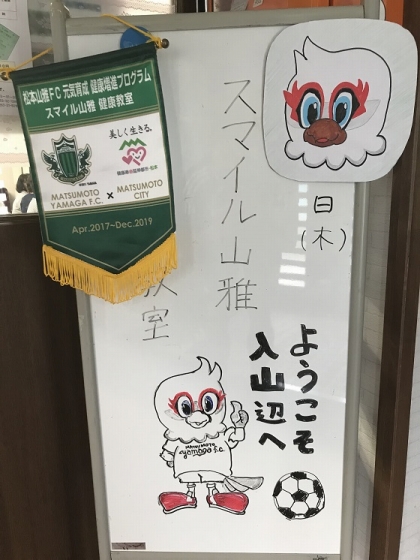 松本山雅FC 元気育成 健康増進プログラム
スマイル山雅 健康教室
美しく生きる。
MATSUMOTO
YAMAGA F.C.
×
MATSUMOTO
CITY
Apr.2017~Dec.2019
スマイル山雅
教室
日
(木)
ようこそ
入山辺へ
MATSUMOTO
yamaga F.C.